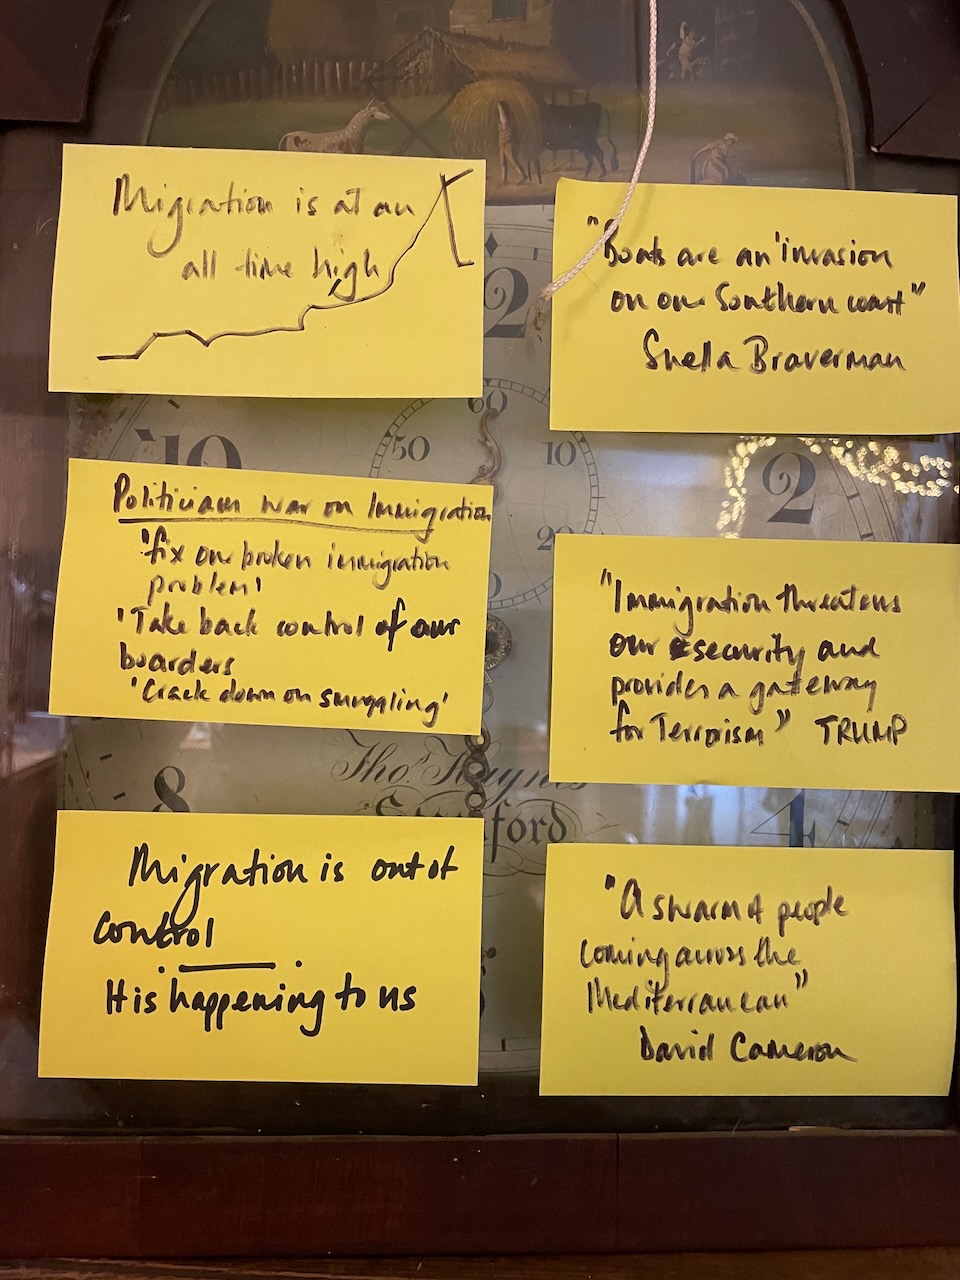 Migration is at an
all time high
"Boats are an 'invasion
on our Southern coast"
Suella Braverman
Politicians war on Immigration
'fix our broken immigration
problem'
'Take back control of our
boarders
'Crack down on smuggling'
"Immigration threatens
our security and
provides a gateway
for Terrorism" TRUMP
Migration is out of
control
It is happening to us
"A swarm of people
coming across the
Mediterranean"
David Cameron
12
60
50
10
10
2
20
8
4
Tho.s Haynes
Stamford